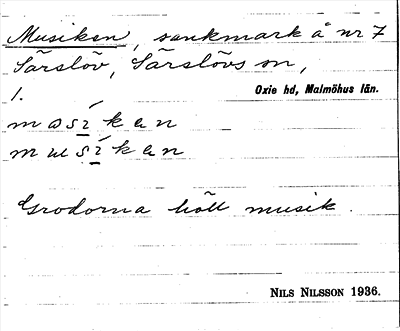 Musiken, sankmark å nr 7
Särslöv, Särslövs sn,
1.
Oxie hd, Malmöhus län.
mɷsíkɐn
mɯsíkɐn
Grodorna höll musik.
NILS NILSSON 1936.